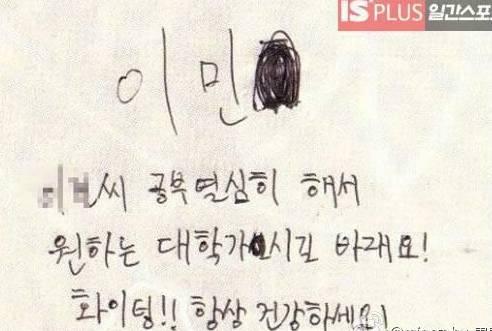 IS PLUS 일간스포
이민
씨 공부 열심히 해서
원하는 대학가시길 바래요!
화이팅!! 항상 건강하세요!